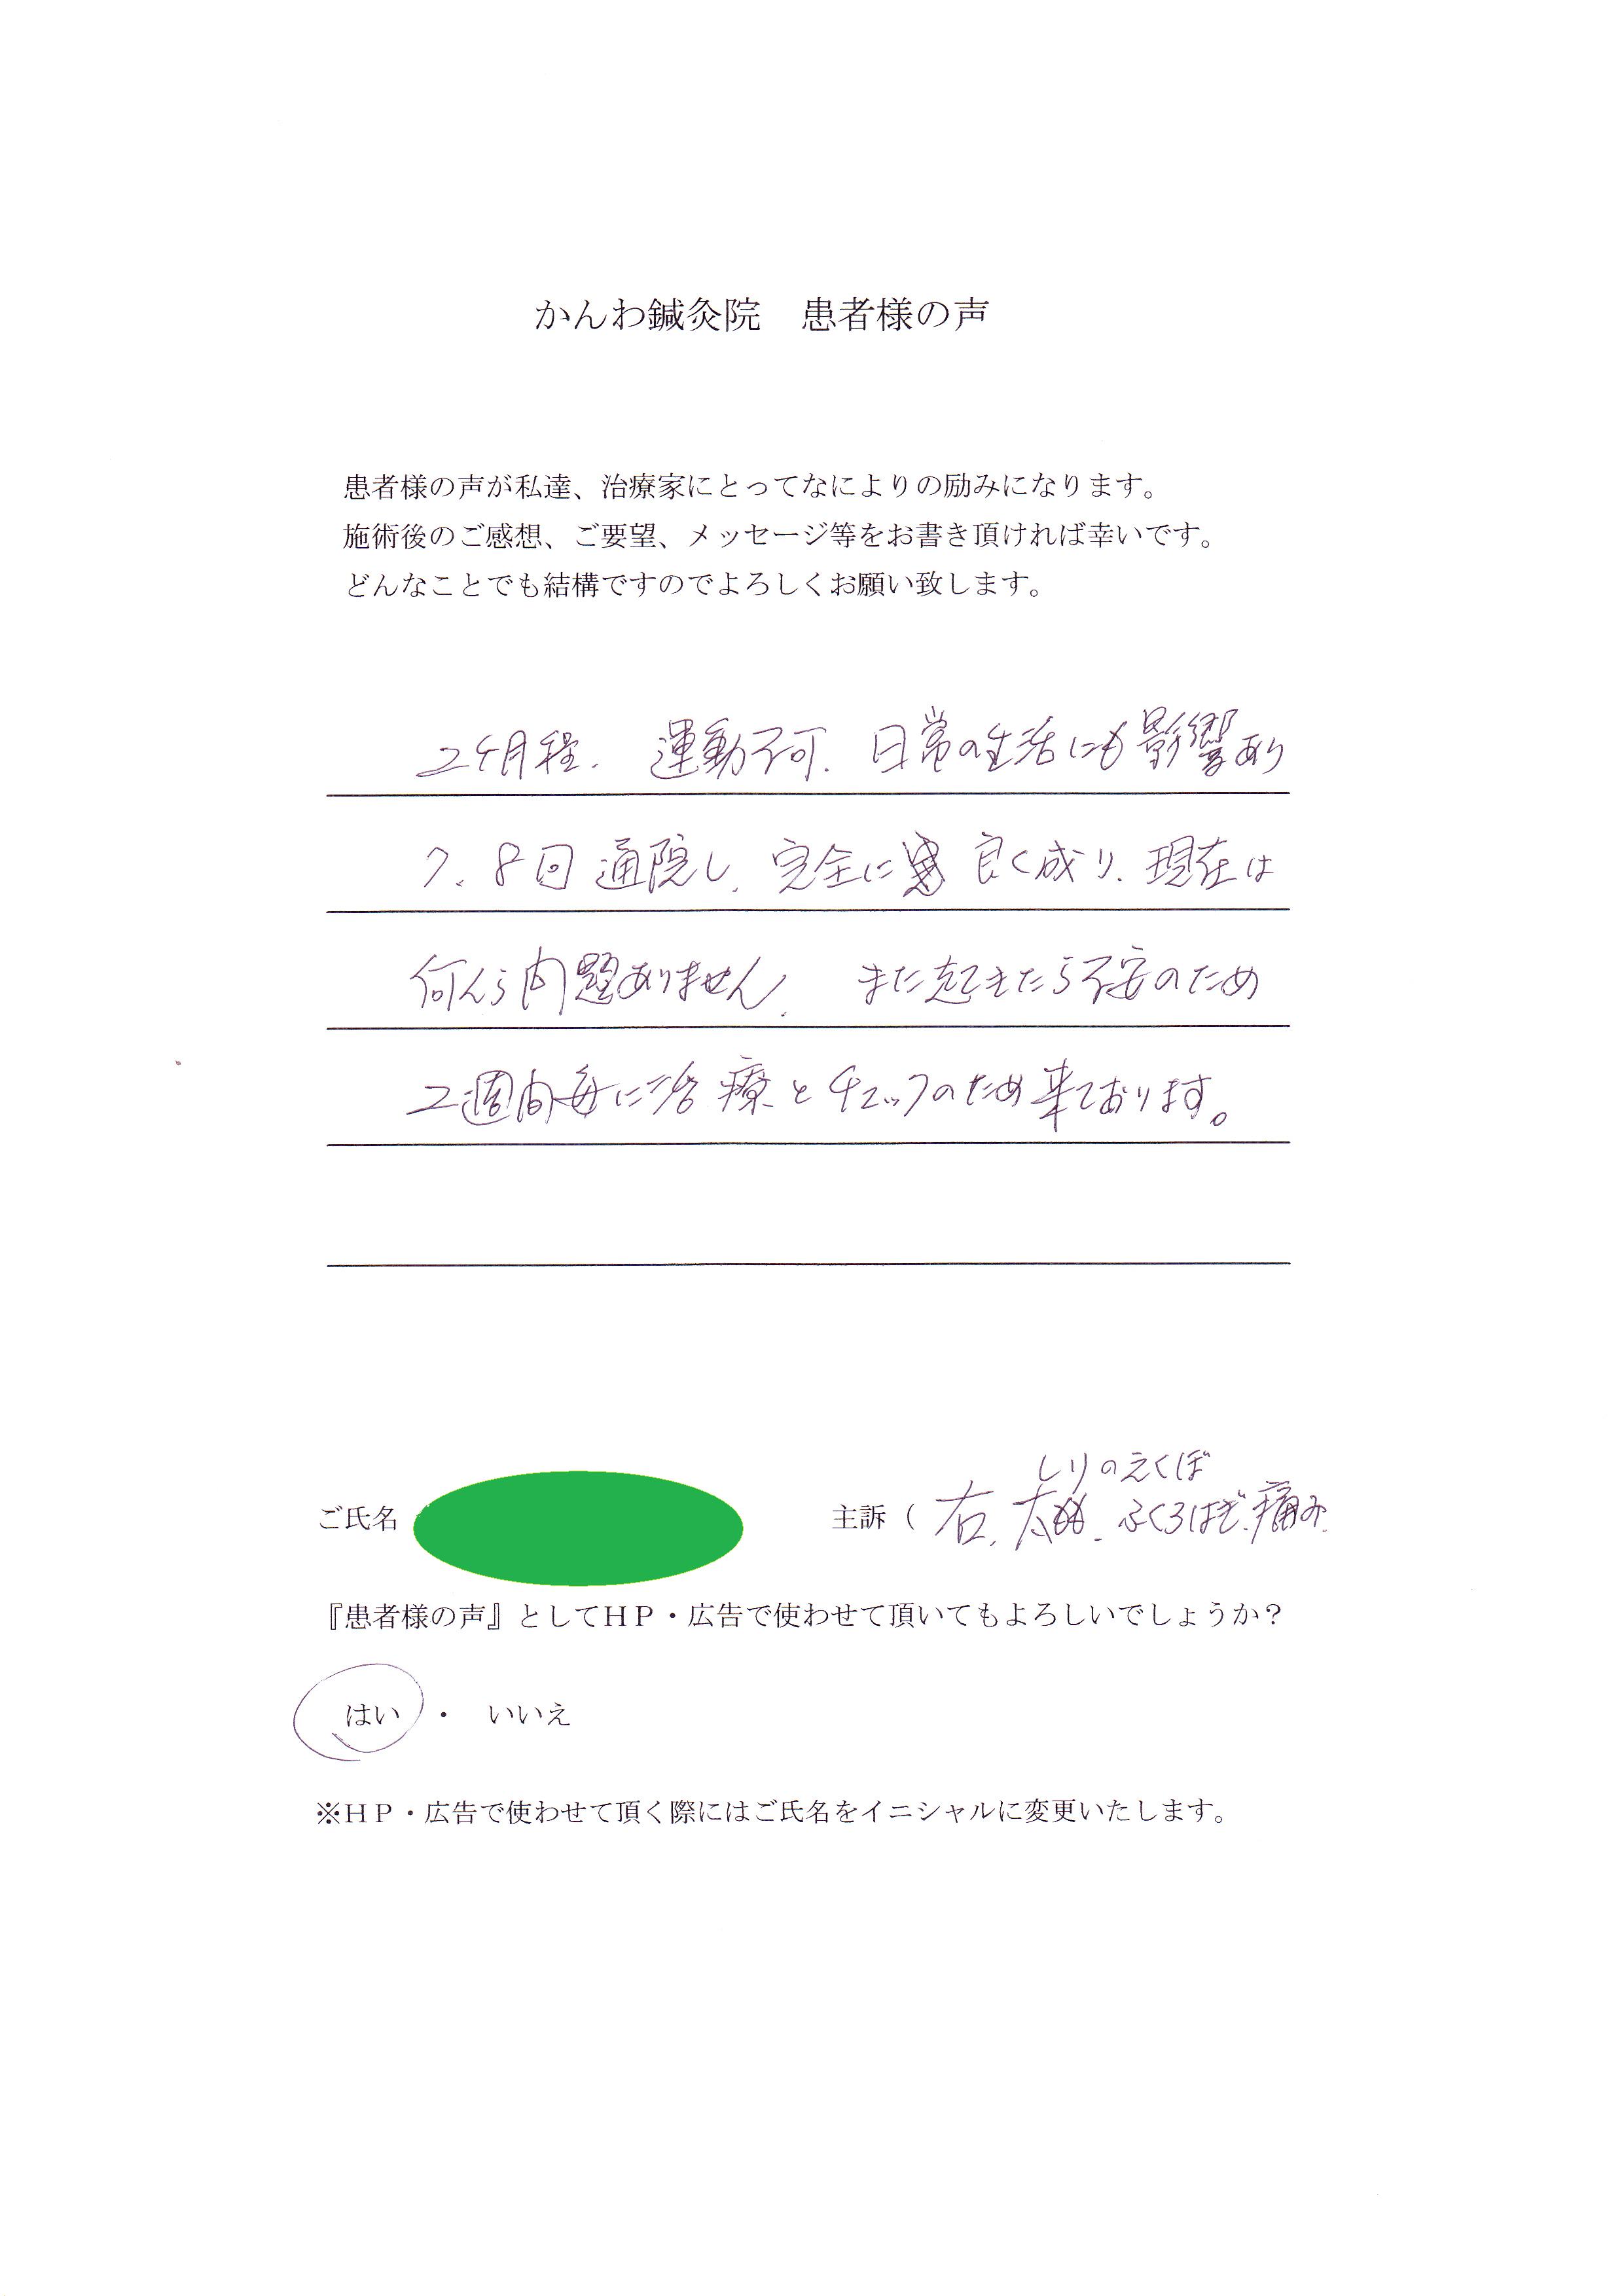 かんわ鍼灸院　患者様の声
患者様の声が私達、治療家にとってなによりの励みになります。
施術後のご感想、ご要望、メッセージ等をお書き頂ければ幸いです。
どんなことでも結構ですのでよろしくお願い致します。
2ヶ月程、運動不可、日常の生活にも影響あり
7、8回通院し、完全に良く成り、現在は
何んら問題ありません、また起きたら不安のため
2週間毎に治療とチェックのため来ております。
しりのえくぼ
ご氏名　主訴（右、太もも、ふくらはぎ、痛み
『患者様の声』としてＨＰ・広告で使わせて頂いてもよろしいでしょうか？
はい　・　いいえ
※ＨＰ・広告で使わせて頂く際にはご氏名をイニシャルに変更いたします。